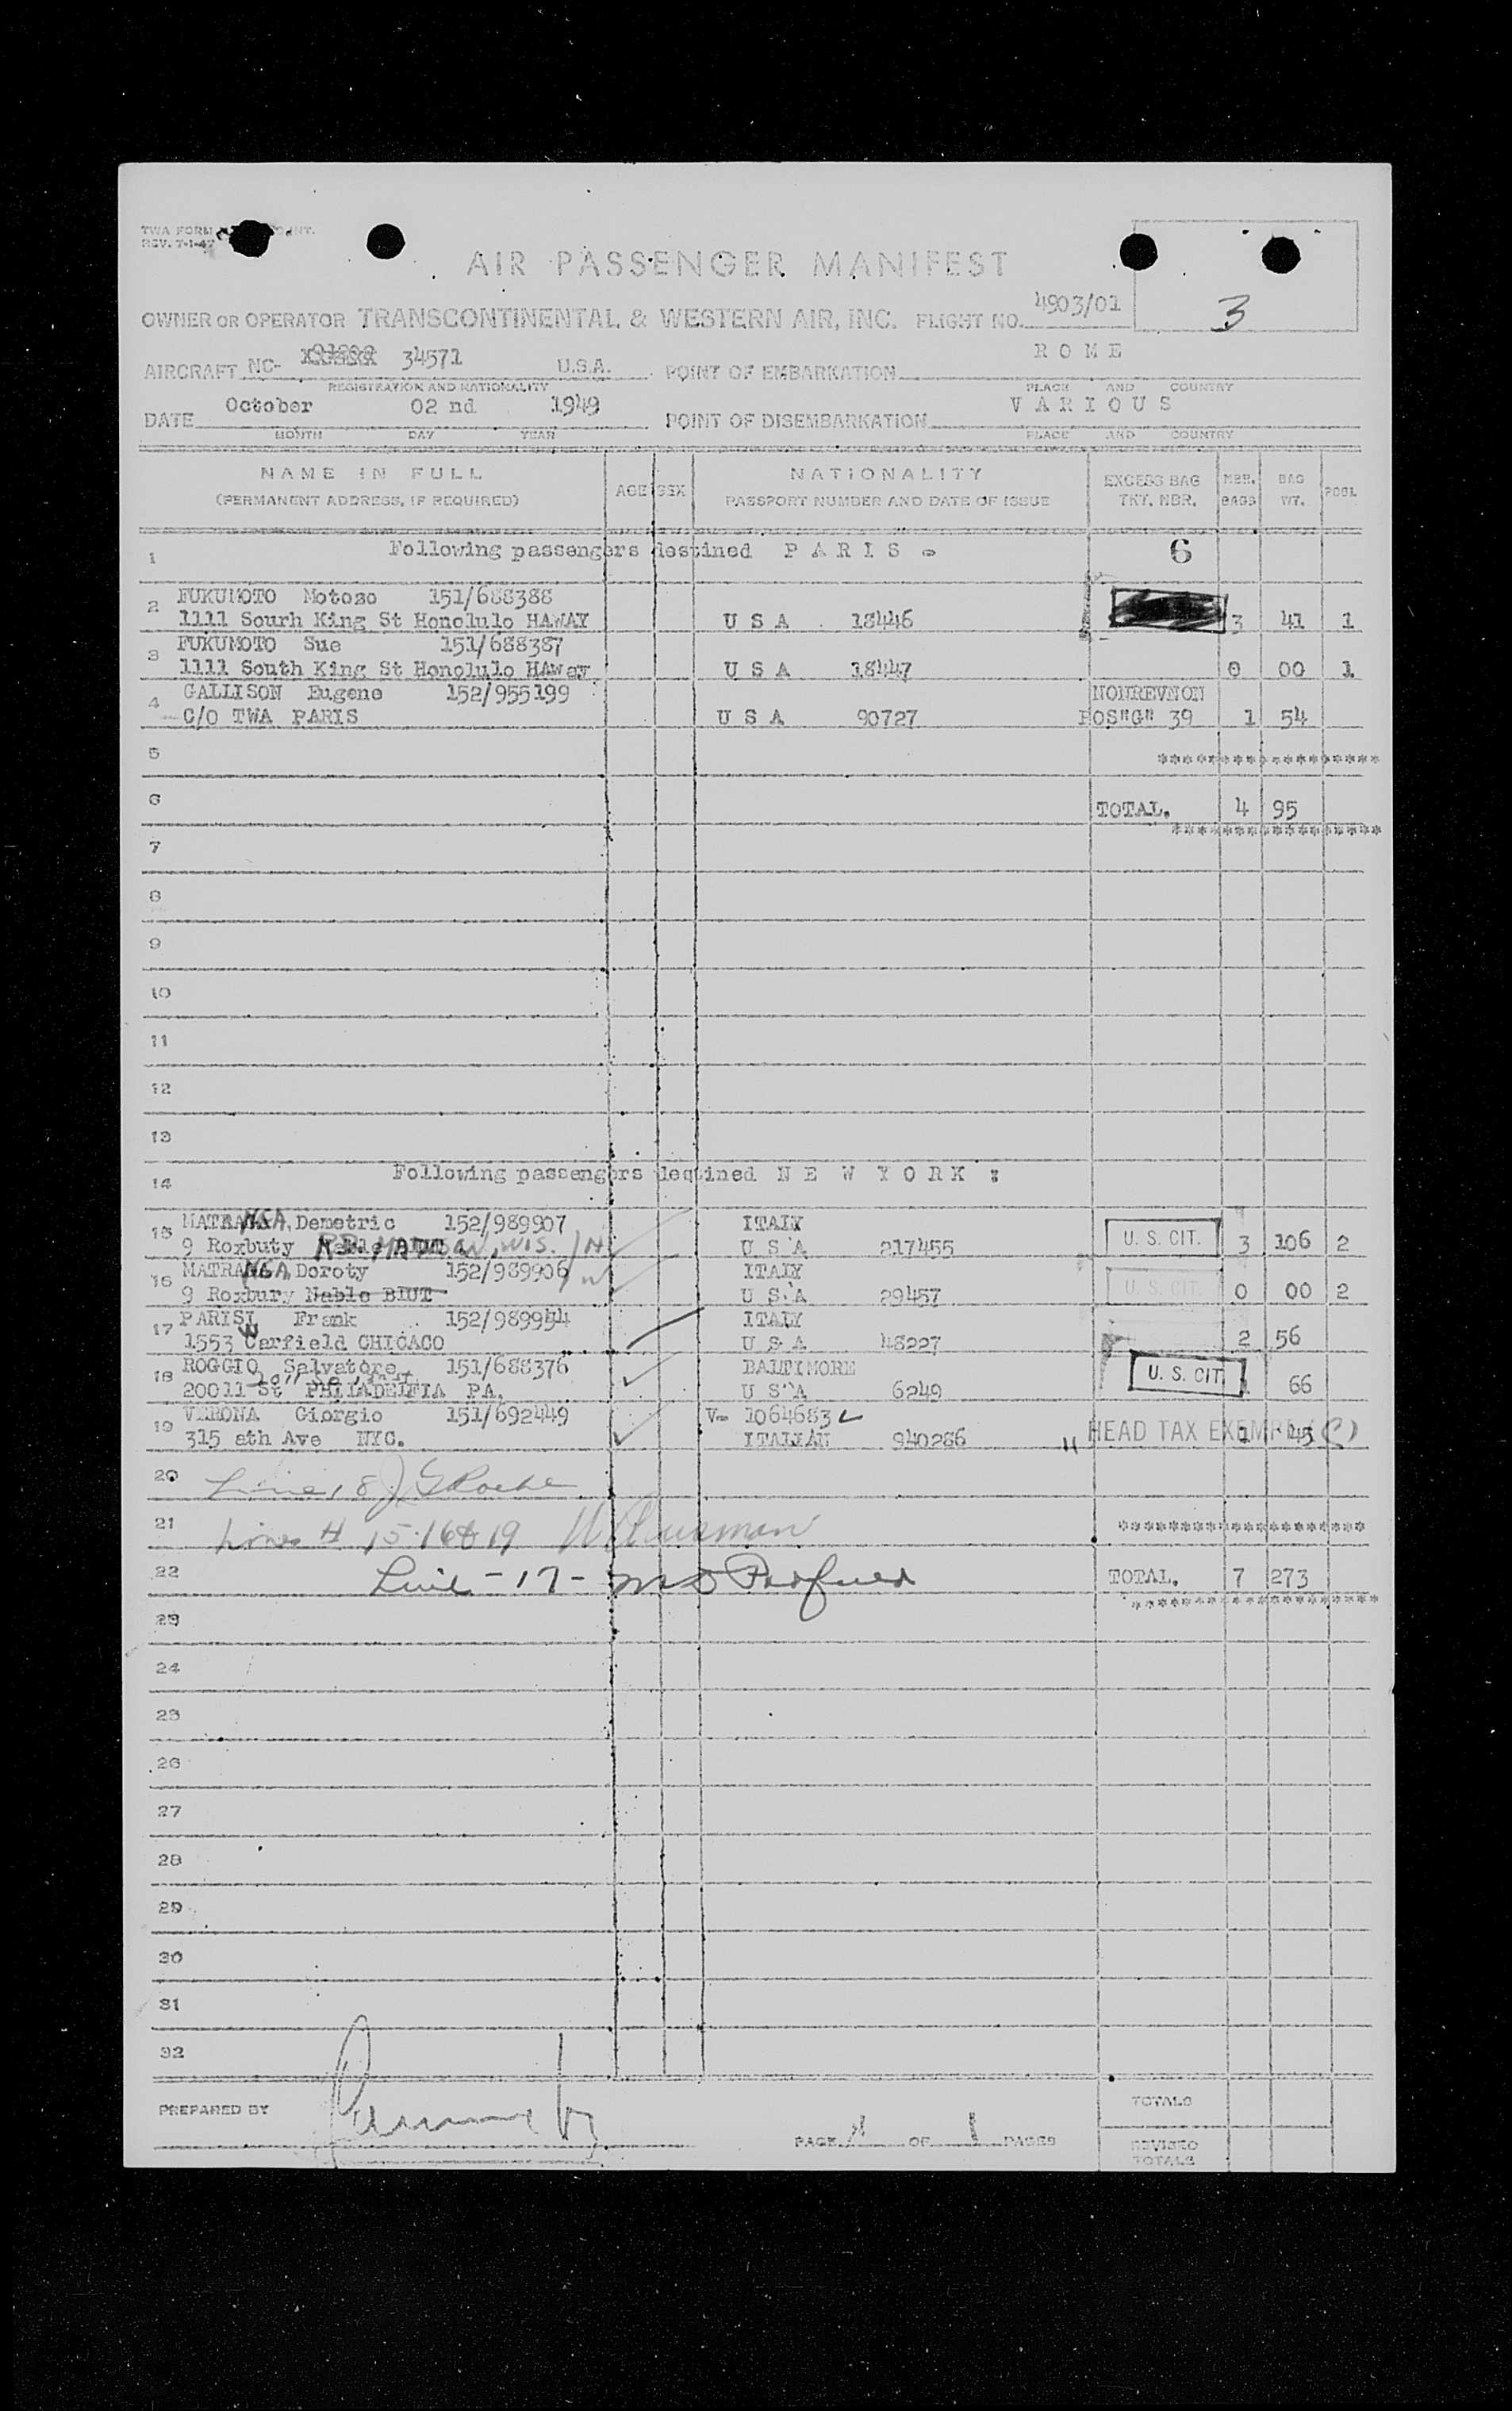 TWA FORM
REV. 7-1-47
AIR PASSENGER MANIFEST
3
OWNER OR OPERATOR TRANSCONTINENTAL & WESTERN AIR, INC. FLIGHT NO. 4903/01
AIRCRAFT NC- 34571 U.S.A. POINT OF EMBARKATION R O M E
REGISTRATION AND NATIONALITY PLACE AND COUNTRY
DATE October 02 nd 1949 POINT OF DISEMBARKATION V A R I O U S
MONTH DAY YEAR PLACE AND COUNTRY
NAME IN FULL AGE SEX NATIONALITY EXCESS BAG NBR. BAG POOL
(PERMANENT ADDRESS, IF REQUIRED) PASSPORT NUMBER AND DATE OF ISSUE TKT. NBR. BAGS WT.
1 Following passengers destined P A R I S = 6
2 FUKUMOTO Motozo 151/688388
1111 Sourh King St Honolulo HAWAY U S A 18446 3 41 1
3 FUKUMOTO Sue 151/688387
1111 South King St Honolulo HAway U S A 18447 0 00 1
4 GALLISON Eugene 152/955199 NONREVNON
C/O TWA PARIS U S A 90727 POS"G" 39 1 54
5 ******************
6 TOTAL. 4 95
*****************
7
8
9
10
11
12
13
14 Following passengers destined N E W Y O R K :
15 MATRANGA, Demetric 152/989907 ITALY
9 Roxbuty RD. MADISON, WIS. U S A 217455 U. S. CIT. 3 106 2
16 MATRANGA, Doroty 152/989906 ITALY
9 Roxbury Nable BIUT U S A 29457 U. S. CIT. 0 00 2
17 PARISI Frank 152/989954 ITALY
1553 Carfield CHICAGO U S A 48227 2 56
18 ROGGIO Salvatore 151/688376 BALTIMORE
20011 St PHILADELFIA PA. U S A 6249 U. S. CIT. 66
19 VERONA Giorgio 151/692449 V- 1064683
315 ath Ave NYC. ITALIAN 940286 " HEAD TAX EXEMPT 1 45
20 Line 18 J G Roche
21 Lines # 15-16&19 ******************
22 Line - 17 - TOTAL. 7 273
******************
23
24
25
26
27
28
29
30
31
32
PREPARED BY TOTALS
PAGE 1 OF 1 PAGES
REVISED
TOTALS